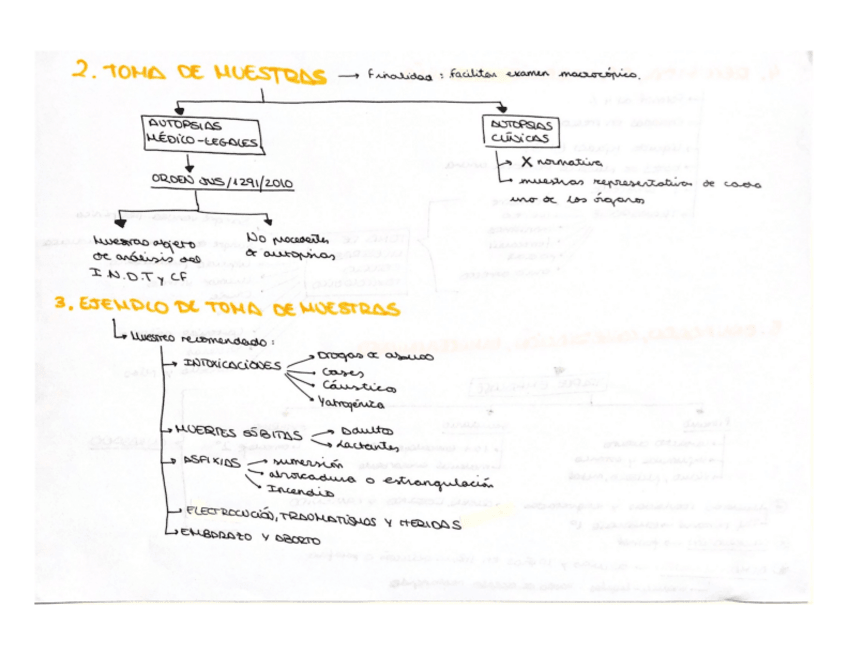 2. TOMA DE MUESTRAS → Finalidad : facilitar examen macrocópico.
AUTOPSIAS
MÉDICO-LEGALES
AUTOPSIAS
CLÍNICAS
ORDEN JUS/1291/2010
X normativa
muestras representativa de cada
uno de los órganos
Muestras objeto
de análisis del
I.N.D.T y CF
No procedentes
de autopsias
3. EJEMPLO DE TOMA DE MUESTRAS
Muestreo recomendado :
INTOXICACIONES
Drogas de abuso
Gases
Cáustico
Yatrogénica
MUERTES SÚBITAS
Adulto
Lactantes
ASFIXIAS
sumersión
ahorcadura o estrangulación
Incendio
ELECTROCUCIÓN, TRAUMATISMOS Y HERIDAS
EMBARAZO Y ABORTO